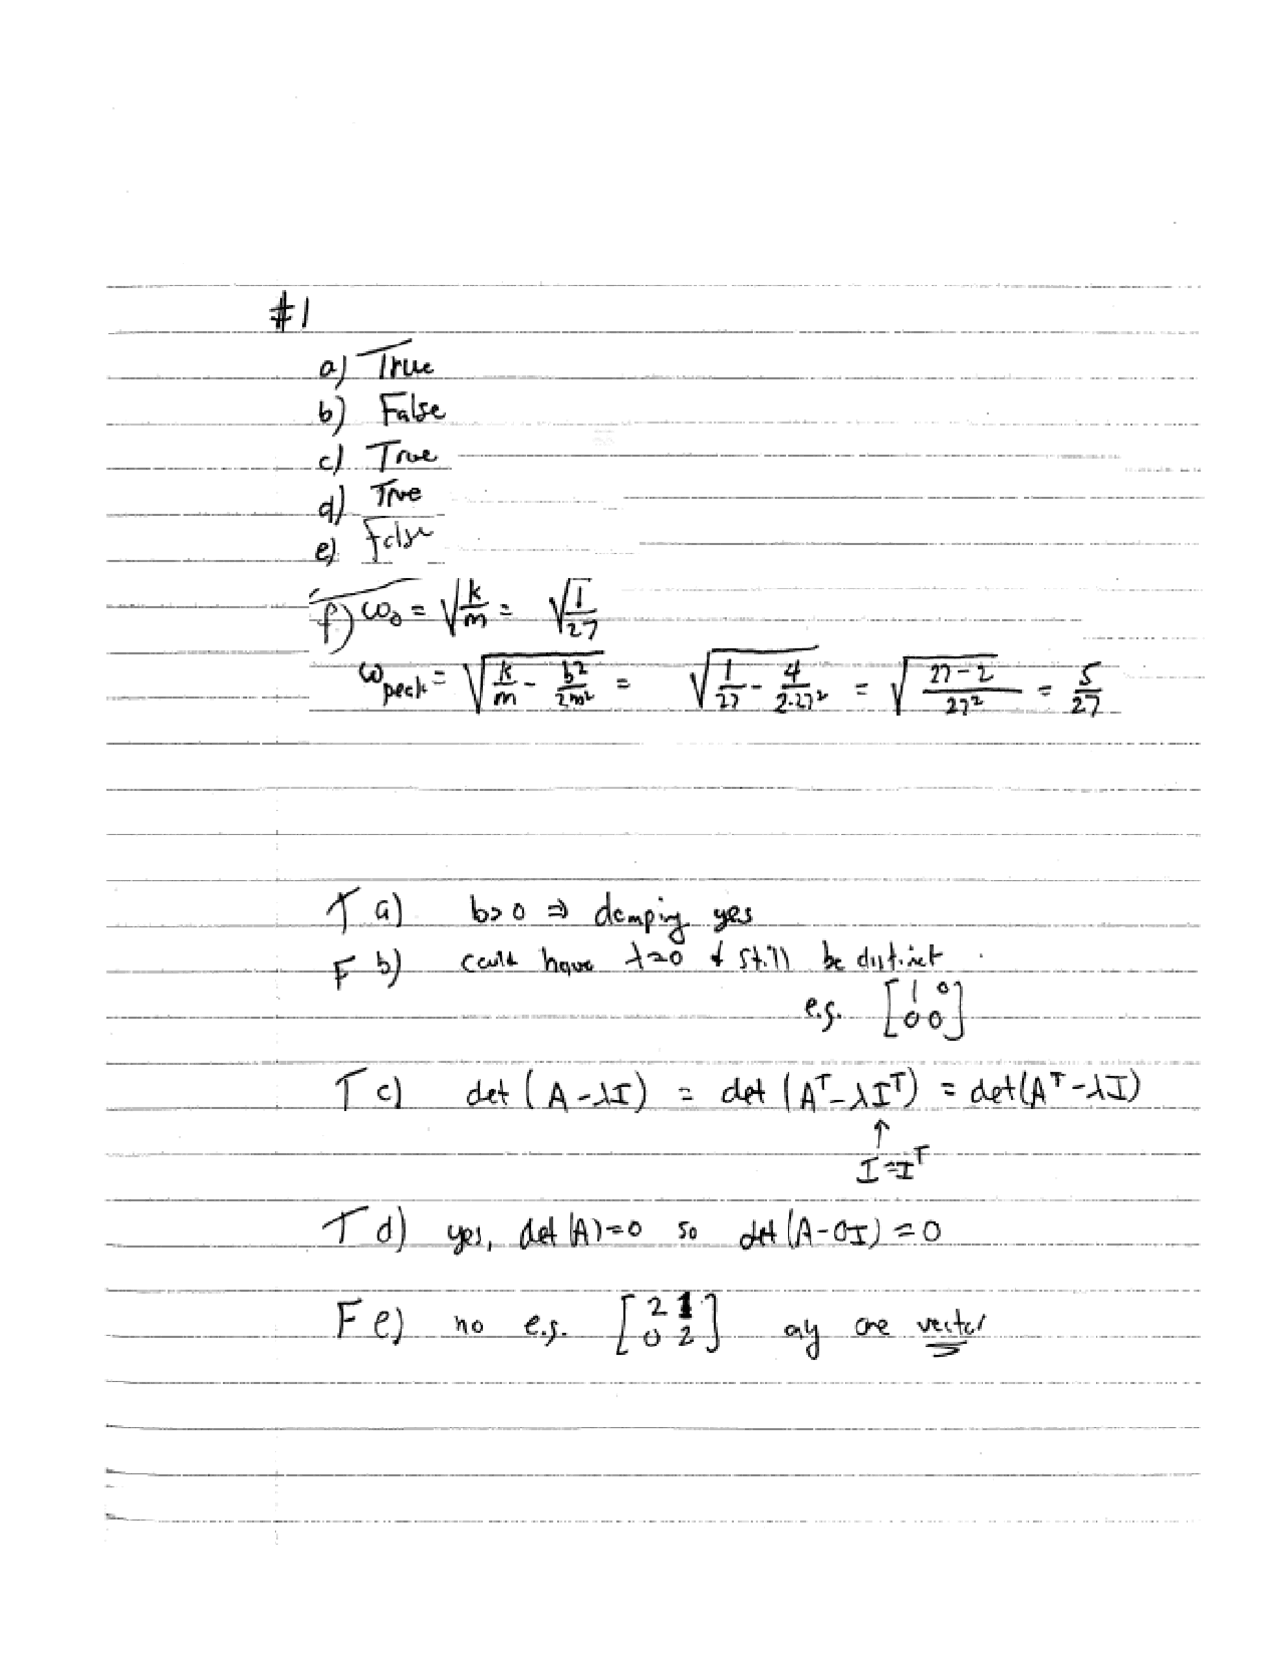 #1
a) True
b) False
c) True
d) True
e) False
f) ω₀ = √(k/m) = √(1/27)
ω_peak = √(k/m - b²/2m²) = √(1/27 - 4/2·27²) = √((27-2)/27²) = 5/27
T a) b>0 ⇒ damping yes
F b) could have λ=0 & still be distinct
e.g. [1 0; 0 0]
T c) det(A-λI) = det(Aᵀ-λIᵀ) = det(Aᵀ-λI)
↑
I=Iᵀ
T d) yes, det(A)=0 so det(A-0I)=0
F e) no e.g. [2 1; 0 2] only one vector